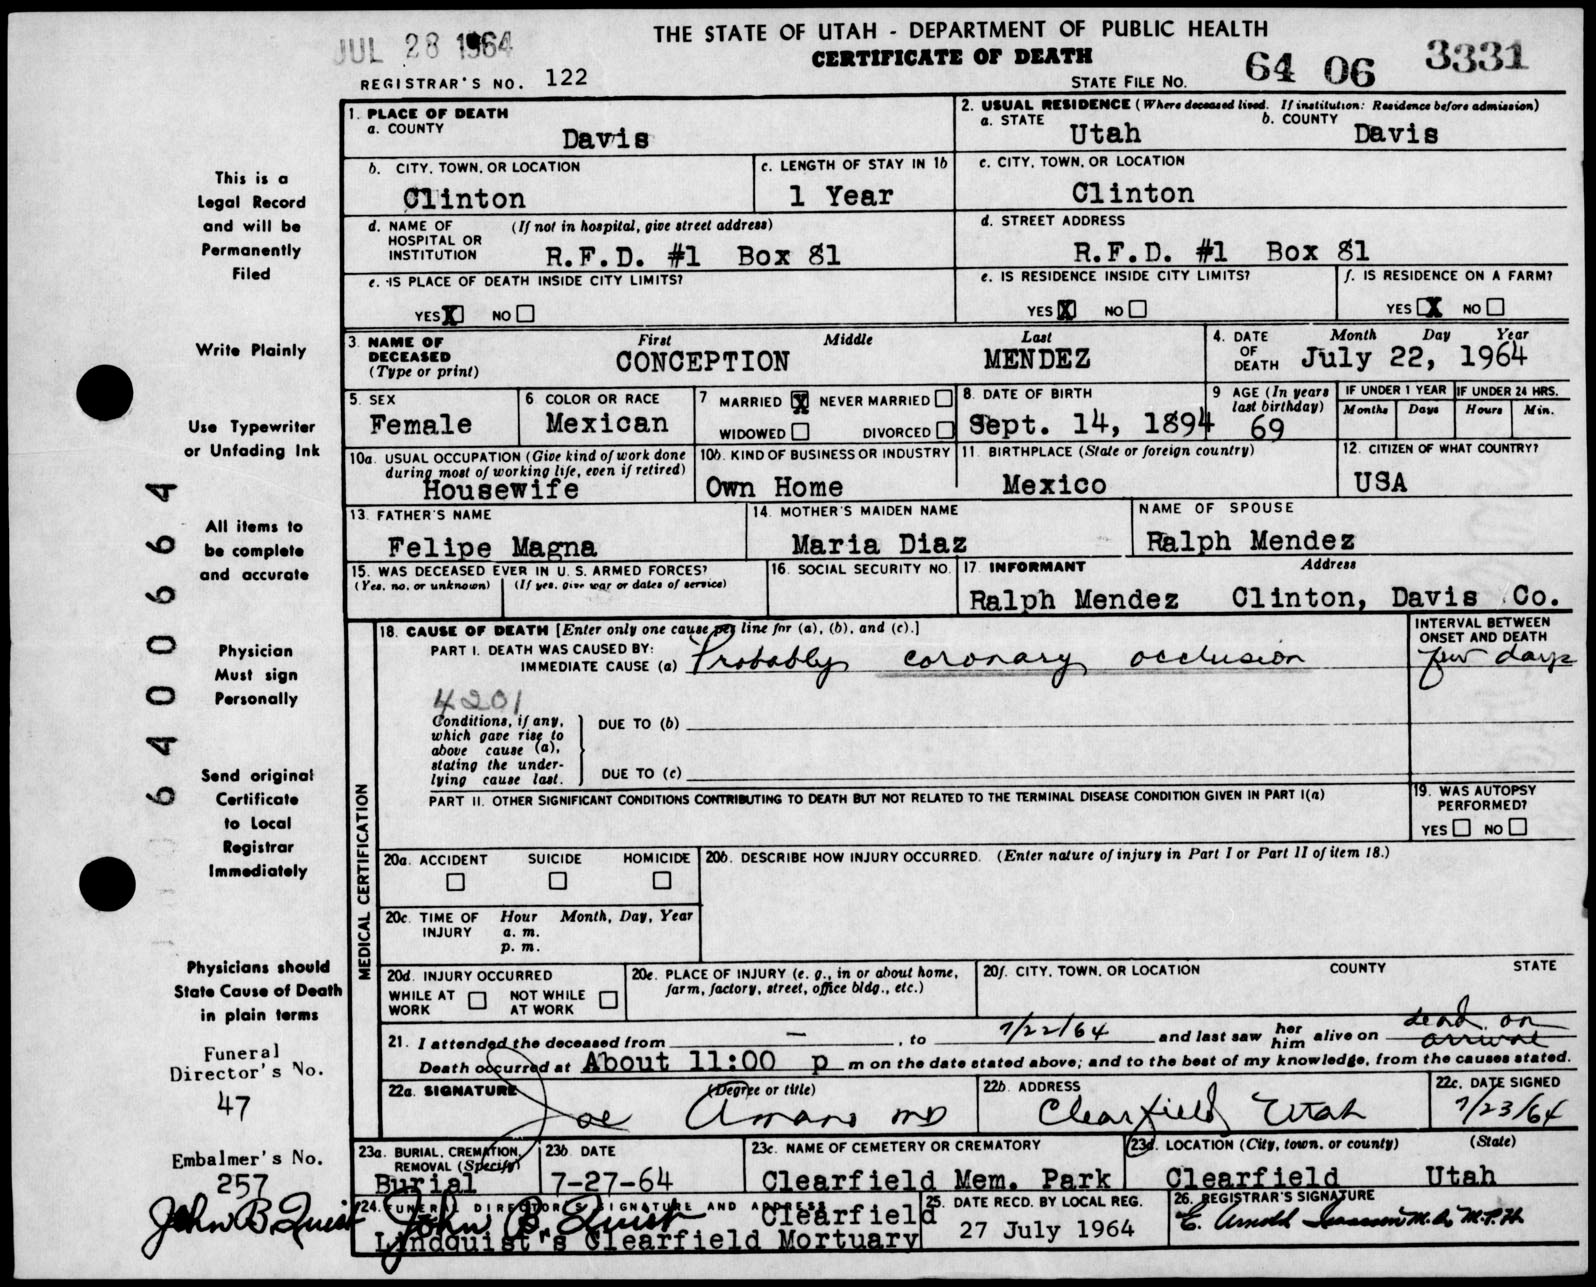 JUL 28 1964
THE STATE OF UTAH - DEPARTMENT OF PUBLIC HEALTH
CERTIFICATE OF DEATH
REGISTRAR'S NO. 122
STATE FILE NO. 64 06 3331
This is a
Legal Record
and will be
Permanently
Filed
Write Plainly
Use Typewriter
or Unfading Ink
All items to
be complete
and accurate
Physician
Must sign
Personally
Send original
Certificate
to Local
Registrar
Immediately
Physicians should
State Cause of Death
in plain terms
Funeral
Director's No.
47
Embalmer's No.
257
John B. Quist
6400664
1. PLACE OF DEATH
a. COUNTY
Davis
2. USUAL RESIDENCE (Where deceased lived. If institution: Residence before admission)
a. STATE b. COUNTY
Utah Davis
b. CITY, TOWN, OR LOCATION
Clinton
c. LENGTH OF STAY IN 1b
1 Year
c. CITY, TOWN, OR LOCATION
Clinton
d. NAME OF (If not in hospital, give street address)
HOSPITAL OR
INSTITUTION R.F.D. #1 Box 81
d. STREET ADDRESS
R.F.D. #1 Box 81
e. IS PLACE OF DEATH INSIDE CITY LIMITS?
YES X NO
e. IS RESIDENCE INSIDE CITY LIMITS?
YES X NO
f. IS RESIDENCE ON A FARM?
YES X NO
3. NAME OF First Middle Last
DECEASED CONCEPTION MENDEZ
(Type or print)
4. DATE Month Day Year
OF
DEATH July 22, 1964
5. SEX
Female
6 COLOR OR RACE
Mexican
7 MARRIED X NEVER MARRIED
WIDOWED DIVORCED
8. DATE OF BIRTH
Sept. 14, 1894
9 AGE (In years
last birthday)
69
IF UNDER 1 YEAR IF UNDER 24 HRS.
Months Days Hours Min.
10a. USUAL OCCUPATION (Give kind of work done
during most of working life, even if retired)
Housewife
10b. KIND OF BUSINESS OR INDUSTRY
Own Home
11. BIRTHPLACE (State or foreign country)
Mexico
12. CITIZEN OF WHAT COUNTRY?
USA
13. FATHER'S NAME
Felipe Magna
14. MOTHER'S MAIDEN NAME
Maria Diaz
NAME OF SPOUSE
Ralph Mendez
15. WAS DECEASED EVER IN U. S. ARMED FORCES?
(Yes, no, or unknown) (If yes, give war or dates of service)
16. SOCIAL SECURITY NO.
17. INFORMANT Address
Ralph Mendez Clinton, Davis Co.
MEDICAL CERTIFICATION
18. CAUSE OF DEATH [Enter only one cause per line for (a), (b), and (c).]
PART I. DEATH WAS CAUSED BY:
IMMEDIATE CAUSE (a) Probably coronary occlusion
INTERVAL BETWEEN
ONSET AND DEATH
few days
4201
Conditions, if any,
which gave rise to
above cause (a),
stating the under-
lying cause last.
DUE TO (b)
DUE TO (c)
PART II. OTHER SIGNIFICANT CONDITIONS CONTRIBUTING TO DEATH BUT NOT RELATED TO THE TERMINAL DISEASE CONDITION GIVEN IN PART I(a)
19. WAS AUTOPSY
PERFORMED?
YES NO
20a. ACCIDENT SUICIDE HOMICIDE
20b. DESCRIBE HOW INJURY OCCURRED. (Enter nature of injury in Part I or Part II of item 18.)
20c. TIME OF Hour Month, Day, Year
INJURY a. m.
p. m.
20d. INJURY OCCURRED
WHILE AT NOT WHILE
WORK AT WORK
20e. PLACE OF INJURY (e. g., in or about home,
farm, factory, street, office bldg., etc.)
20f. CITY, TOWN, OR LOCATION COUNTY STATE
21. I attended the deceased from — , to 7/22/64 and last saw her him alive on dead on arrival
Death occurred at About 11:00 p m on the date stated above; and to the best of my knowledge, from the causes stated.
22a. SIGNATURE (Degree or title)
Joe Amano MD
22b. ADDRESS
Clearfield Utah
22c. DATE SIGNED
7/23/64
23a. BURIAL, CREMATION,
REMOVAL (Specify)
Burial
23b DATE
7-27-64
23c. NAME OF CEMETERY OR CREMATORY
Clearfield Mem. Park
23d. LOCATION (City, town, or county) (State)
Clearfield Utah
24. FUNERAL DIRECTOR'S SIGNATURE AND ADDRESS
John B. Quist Clearfield
Lindquist's Clearfield Mortuary
25. DATE RECD. BY LOCAL REG.
27 July 1964
26. REGISTRAR'S SIGNATURE
E. Arnold Isaasson M.D., M.P.H.